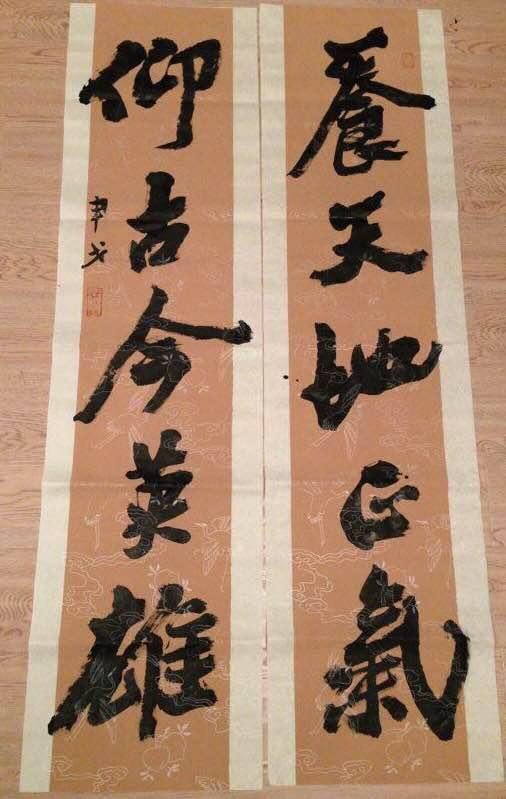 養天地正氣
仰古今英雄